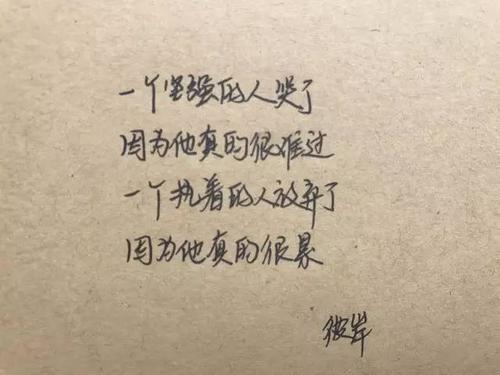 一个坚强的人哭了
因为他真的很难过
一个执着的人放弃了
因为他真的很累
彼岸